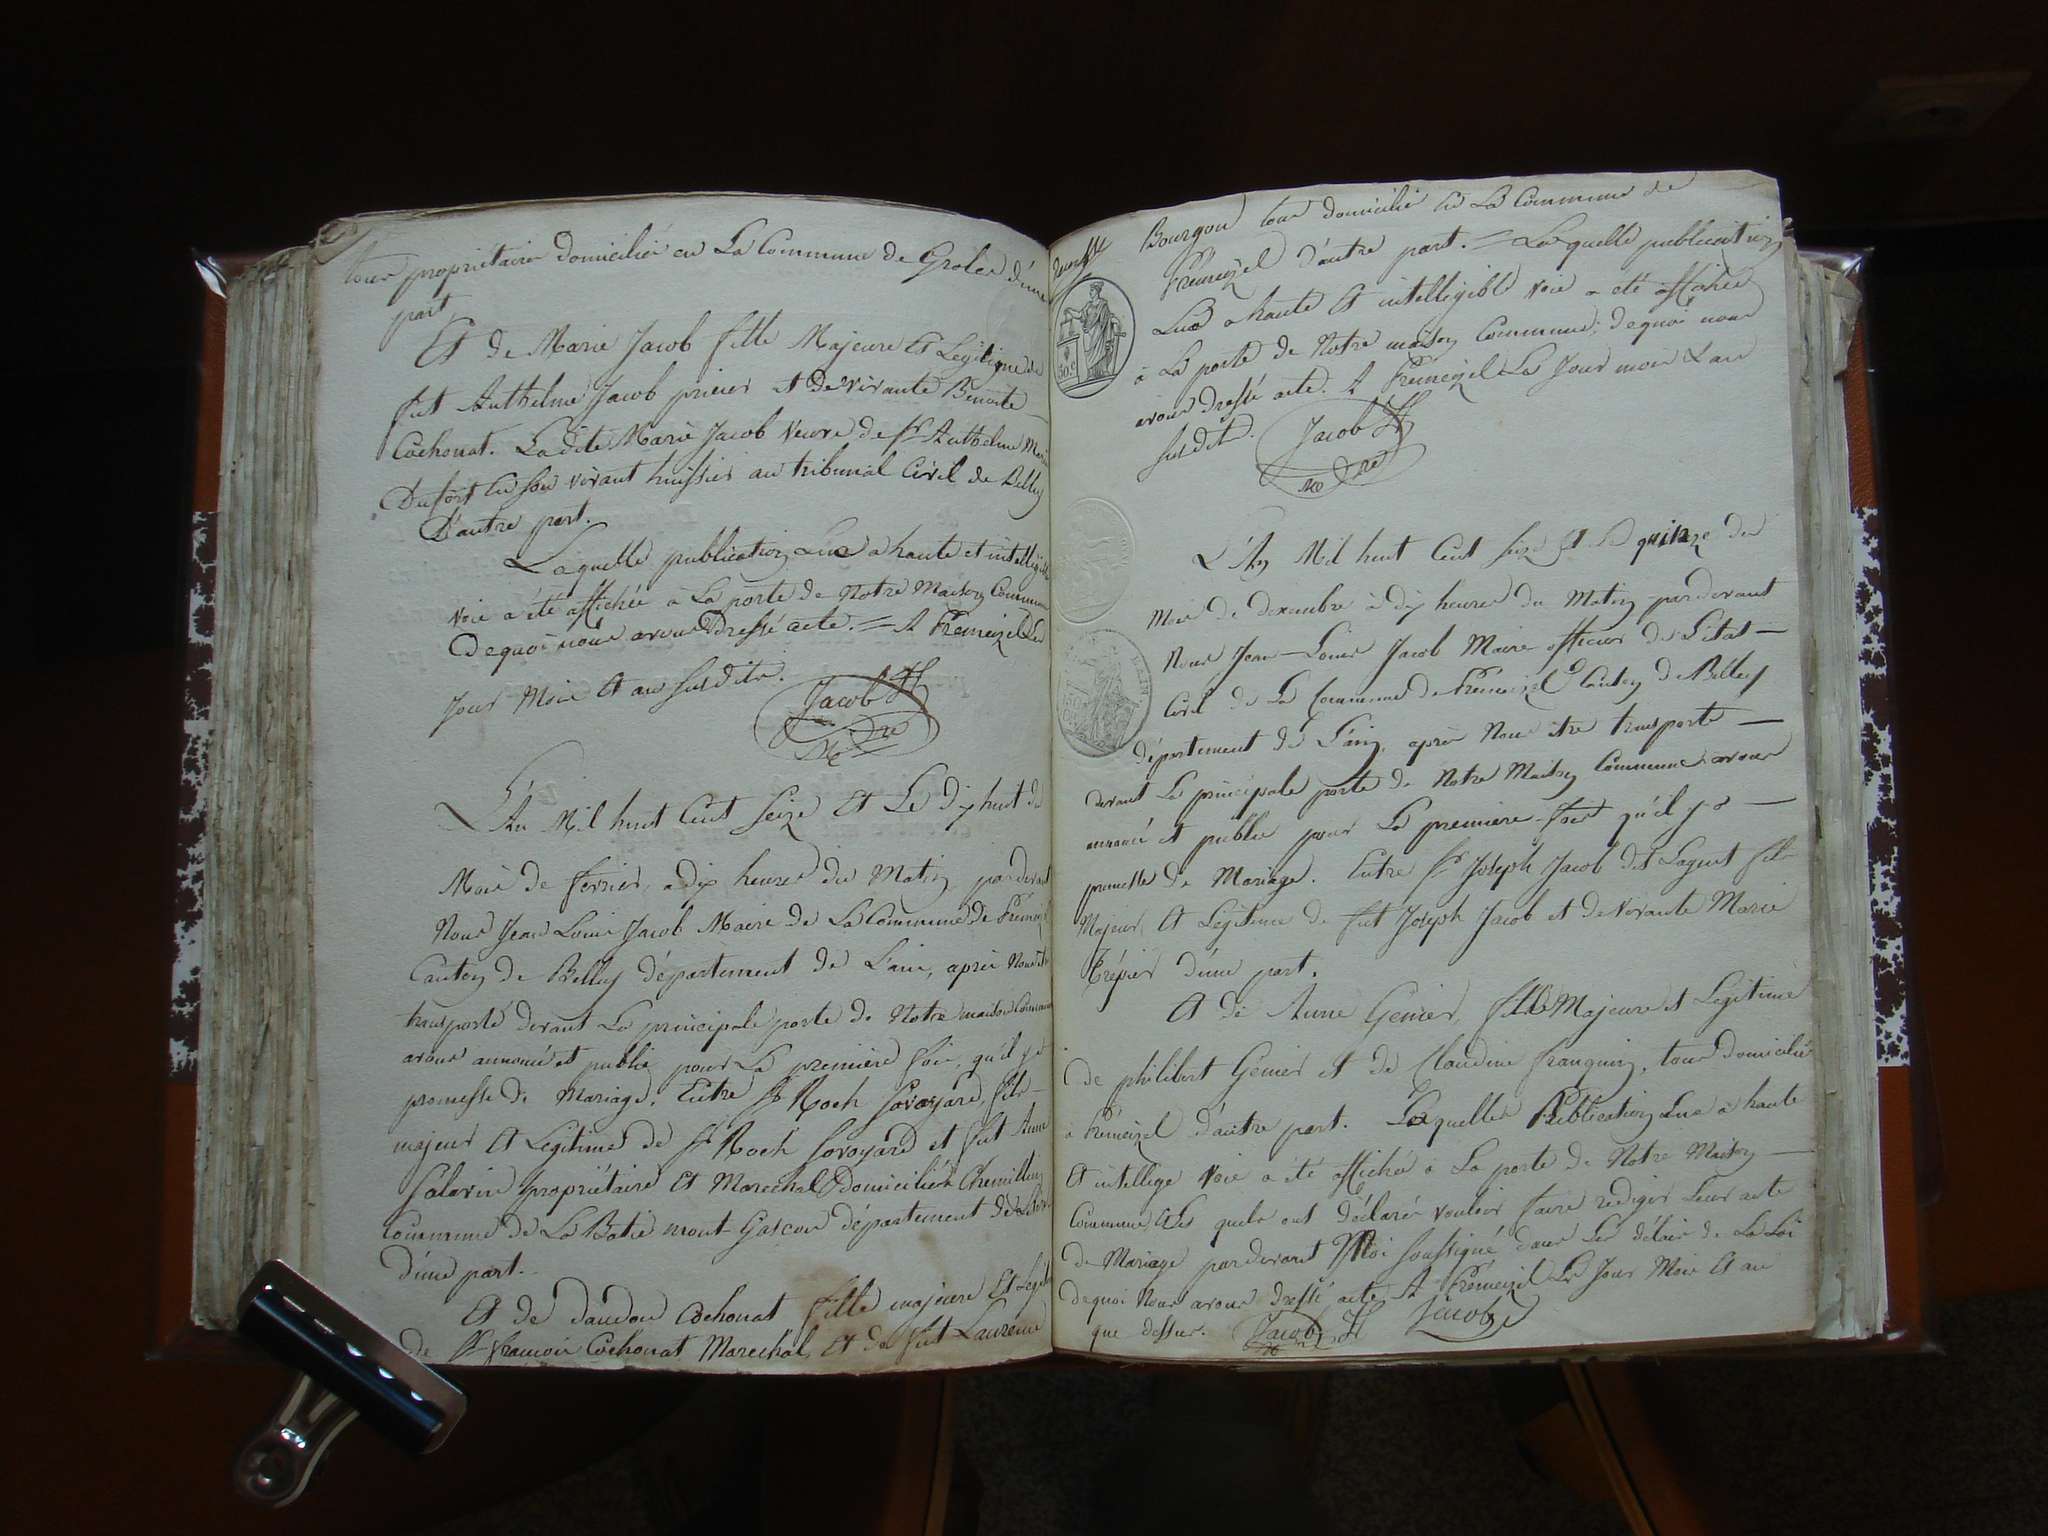 tous propriétaires domiciliés en La Commune de Grolée d'une
part
Et de Marie Jacob fille Majeure Et Legitime de
fut Anthelme Jacob prieur et de vivante Benoite
Cochonat. La dite Marie Jacob veuve de Sr. Anthelme Marie
Dufort en son vivant huissier au tribunal Civil de Belley
D'autre part.
Laquelle publication Lue a haute et intelligible
voie a été affichée a La porte de Notre Maison Commune
Dequoi nous avons Dressé acte. = A Premeizel Les
Jour Mois Et an susdits.
Jacob
Me re
L'An Mil huit Cent Seize Et Le dix huit du
Mois de fevrier, a dix heures du Matin pardevant
Nous Jean Louis Jacob Maire de La Commune de Premeizel
Canton de Belley département de L'ain, après Nous être
transporté devant La principale porte de Notre maison Commune
avons annoncé et publié pour La première fois, qu'il y a
promesse de Mariage. Entre Sr Roch Savoyard, fils
majeur Et Legitime de Sr Roch Savoyard et fut Anne
Salavin propriétaire Et Marechal domicilié a Chemillin
Commune de La Batie mont-Gascon département de L'isere
d'une part.
Et de daudon Cochonat fille majeure Et Legitime
de Sr françois Cochonat Marechal, Et de fut Laurence
Bourgon tous domiciliés en La Commune de
Premeizel d'autre part. = Laquelle publication
Lue a haute Et intelligible voie a été affichée
à La porte de Notre maison Commune; dequoi nous
avons Dressé acte. A Premeizel Les Jour mois & an
susdits.
Jacob
Me re
30.c
L'An Mil huit Cent seize Et Le quinze du
Mois de decembre à dix heures du Matin pardevant
Nous Jean-Louis Jacob Maire officier de L'etat-
Civil de La Commune de Premeizel Canton de Belley
département de L'ain, après Nous être transporté
devant La principale porte de Notre Maison Commune avons
annoncé et publié pour La première fois qu'il y a
promesse de Mariage. Entre Sr Joseph Jacob dit Laguet fils
Majeur Et Légitime de fut Joseph Jacob et de vivante Marie
Trépier d'une part.
Et de Anne Genier, fille Majeure et Légitime
de philibert Genier et de Claudine franquin, tous domiciliés
à Prémeizel d'autre part. Laquelle Publication Lue à haute
Et intellige voie a été affichée a La porte de Notre Maison
Commune, Les quels ont déclarés vouloir faire rediger Leur acte
de Mariage pardevant Moi soussigné dans Les délais de La Loi
dequoi Nous avons dressé acte A Prémeizel Les Jour Mois Et an
que dessus. Jacob Jacob